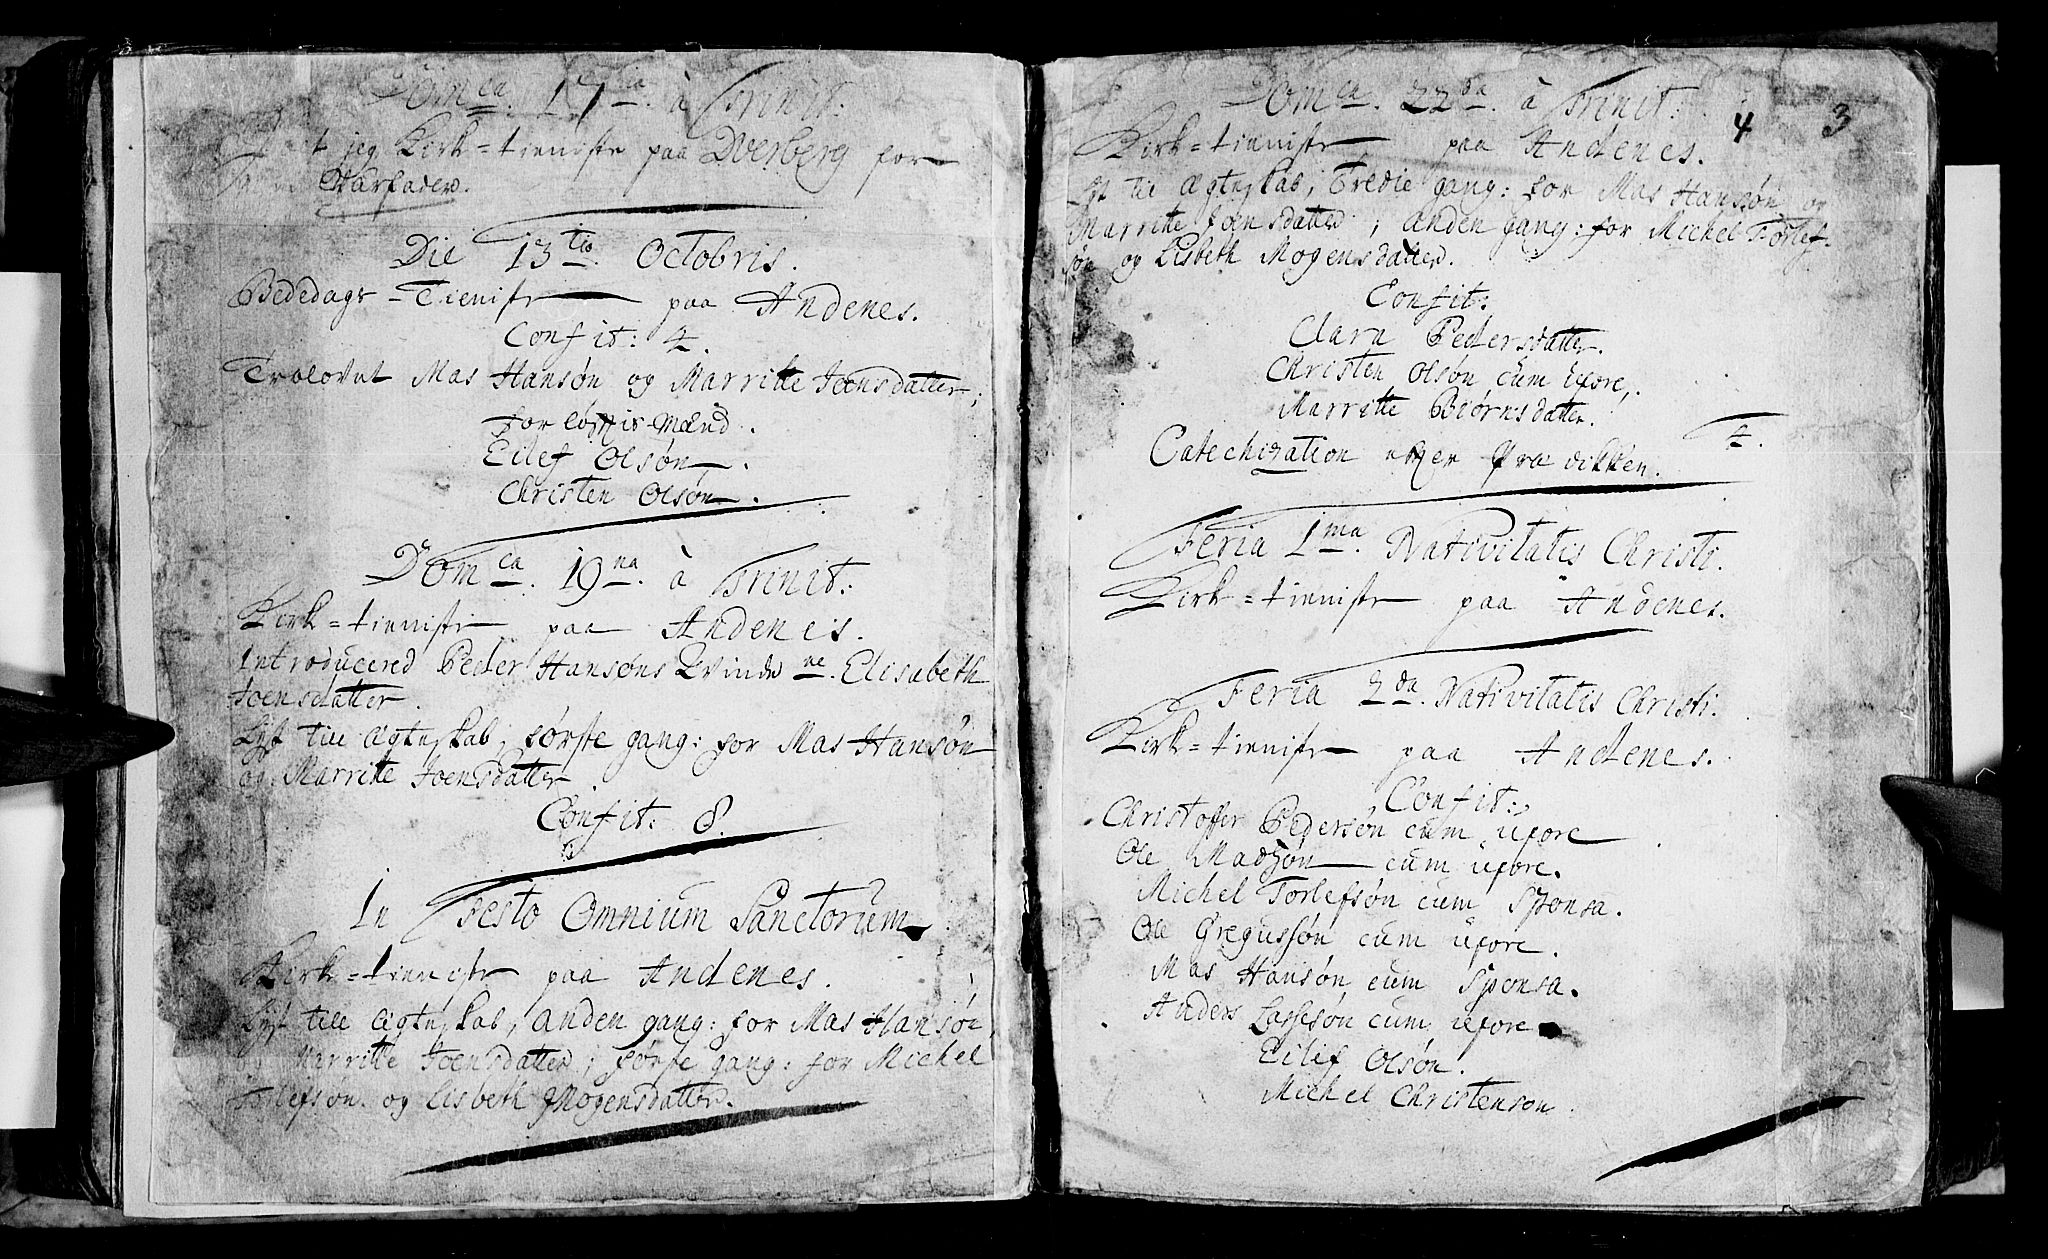 Dom ca. 17 ma. à Trinit:
jeg Kirk=tieniste paa Dverberg for
Die 13 tio. Octobris.
Bededags=Tieniste paa Andenes.
Confit: 4.
Trolovet Mas Hansøn og Marritte Joensdatter;
forløftis-Mænd.
Eilef Olsøn.
Christen Olsøn.
Domca. 19na. à Trinit:
Kirk=tieniste paa Andenes.
Introducered Peder Hansøns Qvinde ne. Elisabeth
Joensdatter.
Lyst till ægteskab, første gang: for Mas Hansøn
og Marritte Joensdatter
Confit: 8.
In Festo Omnium Sanctorum
Kirk=tieniste paa Andenes.
Lyst till ægteskab, anden gang: for Mas Hansøn,
og Marritte Joensdatter; første gang: for Michel
Torlefsøn og Lisbeth Mogensdatter.
4 3
Domca. 22da. à Trinit:
Kirk=tieniste paa Andenes.
Lyst till ægteskab, Tredie gang: for Mas Hansøn og
Marritte Joensdatter; anden gang: for Michel Torlef-
søn og Lisbeth Mogensdatter.
Confit:
Clara Pedersdatter.
Christen Olsøn cum uxore,
Marritte Biørnsdatter.
4.
Catechization efter Prædikken.
Feria 1ma. Nativitatis Christi.
Kirk=tieniste paa Andenes.
Feria 2da. Nativitatis Christi.
Kirk=tieniste paa Andenes.
Confit:
Christoffer Pedersøn cum uxore
Ole Madsøn cum uxore.
Michel Torlefsøn cum Sponsa.
Ole Gregussøn cum uxore.
Mas Hansøn cum Sponsa.
Anders Lassesøn cum uxore
Eilif Olsøn.
Michel Christensøn.